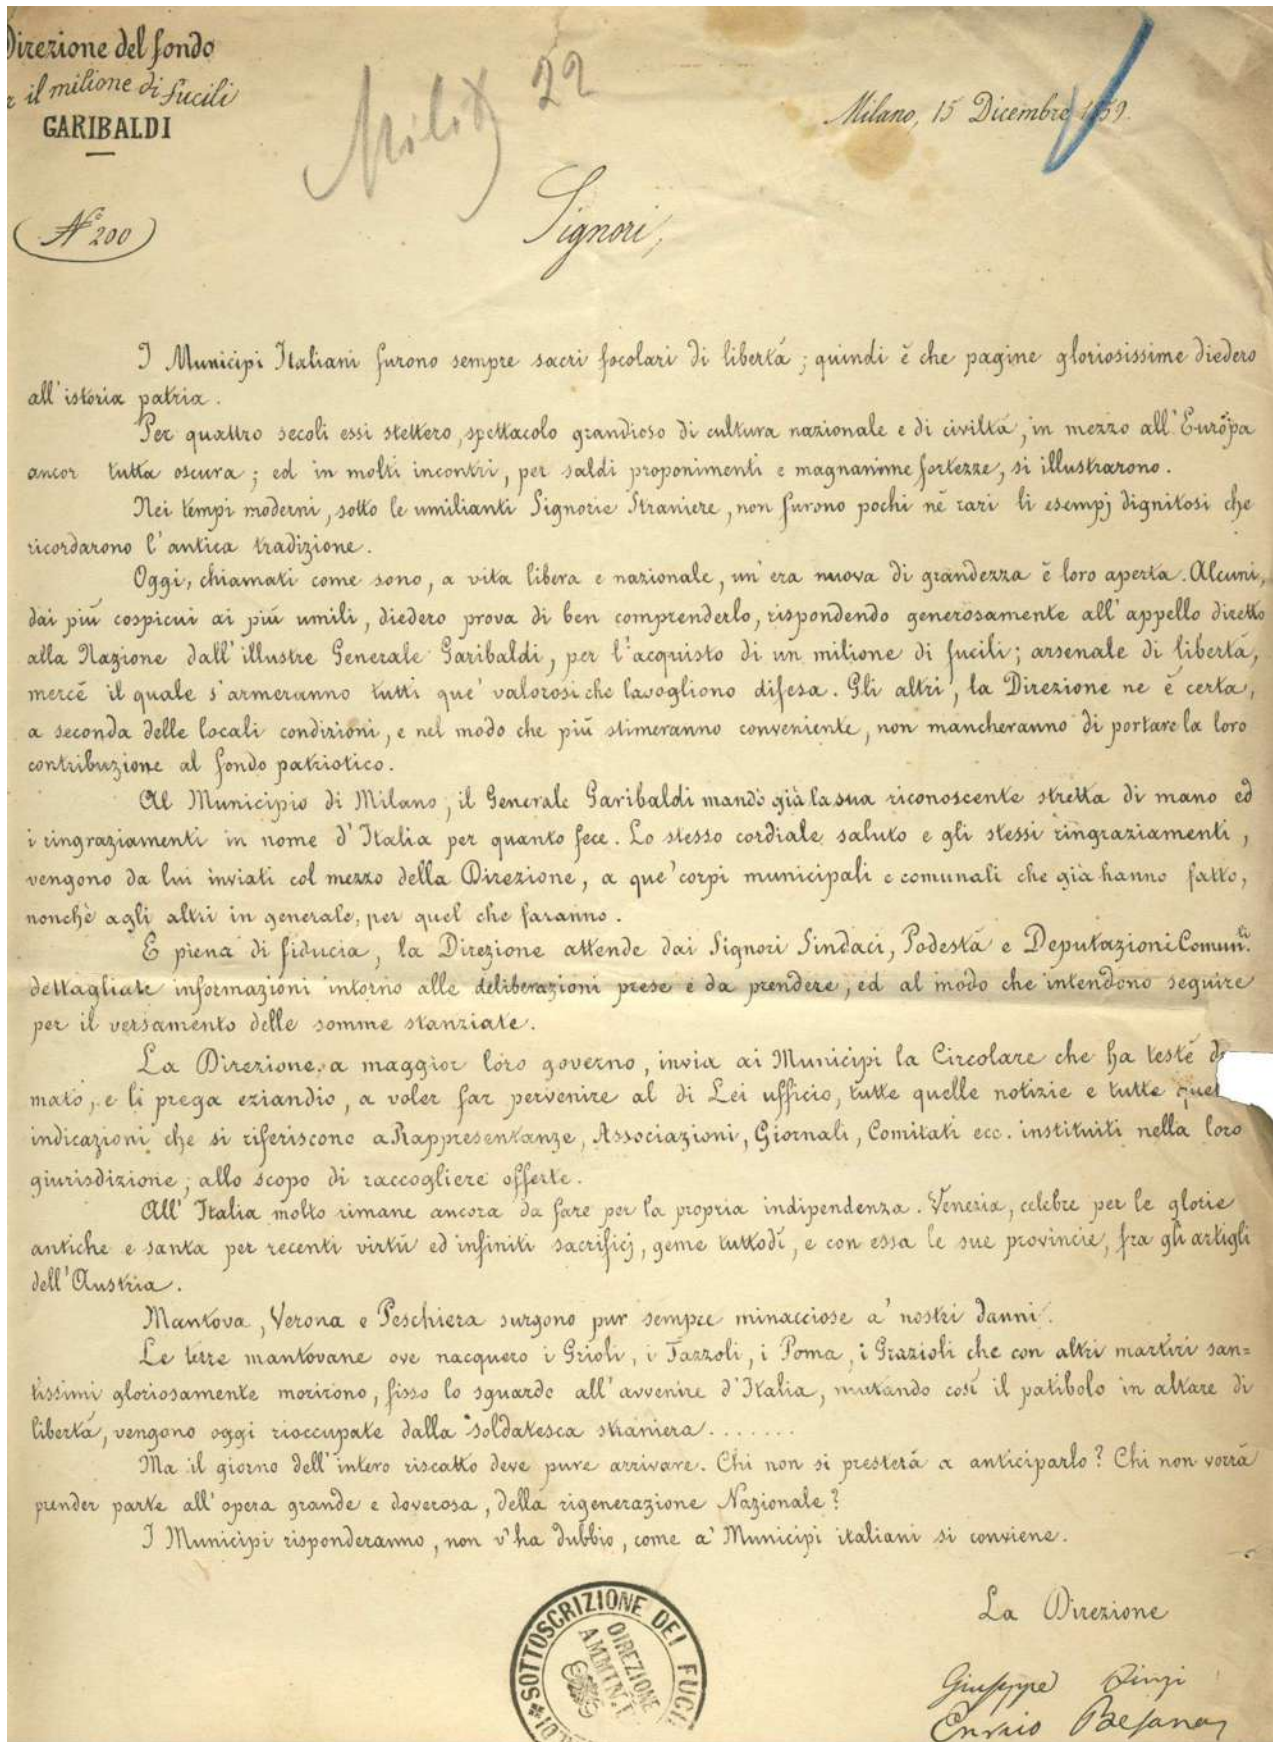 Direzione del fondo
il milione di fucili
GARIBALDI
22
Milano, 15 Dicembre 1859.
N° 200
Signori,
I Municipi Italiani furono sempre sacri focolari di libertá; quindi é che pagine gloriosissime diedero
all'istoria patria.
Per quattro secoli essi stettero, spettacolo grandioso di cultura nazionale e di civiltá, in mezzo all'Europa
ancor tutta oscura; ed in molti incontri, per saldi proponimenti e magnanime fortezze, si illustrarono.
Nei tempi moderni, sotto le umilianti Signorie Straniere, non furono pochi né rari li esempj dignitosi che
ricordarono l'antica tradizione.
Oggi, chiamati come sono, a vita libera e nazionale, un'era nuova di grandezza é loro aperta. Alcuni,
dai piú cospicui ai piú umili, diedero prova di ben comprenderlo, rispondendo generosamente all'appello diretto
alla Nazione dall'illustre Generale Garibaldi, per l'acquisto di un milione di fucili; arsenale di libertá,
mercé il quale s'armeranno tutti que' valorosi che la vogliono difesa. Gli altri, la Direzione ne é certa,
a seconda delle locali condizioni, e nel modo che piú stimeranno conveniente, non mancheranno di portare la loro
contribuzione al fondo patriotico.
Al Municipio di Milano, il Generale Garibaldi mandò già la sua riconoscente stretta di mano ed
i ringraziamenti in nome d'Italia per quanto fece. Lo stesso cordiale saluto e gli stessi ringraziamenti,
vengono da lui inviati col mezzo della Direzione, a que' corpi municipali e comunali che già hanno fatto,
nonchè agli altri in generale, per quel che faranno.
E piena di fiducia, la Direzione attende dai Signori Sindaci, Podestá e Deputazioni Comun.li
dettagliate informazioni intorno alle deliberazioni prese e da prendere, ed al modo che intendono seguire
per il versamento delle somme stanziate.
La Direzione, a maggior loro governo, invia ai Municipi la Circolare che ha testé
mato, e li prega eziandio, a voler far pervenire al di Lei ufficio, tutte quelle notizie e tutte quel
indicazioni che si riferiscono a Rappresentanze, Associazioni, Giornali, Comitati ecc. instituiti nella loro
giurisdizione, allo scopo di raccogliere offerte.
All'Italia molto rimane ancora da fare per la propria indipendenza. Venezia, celebre per le glorie
antiche e santa per recenti virtú ed infiniti sacrificj, geme tuttodí, e con essa le sue provincie, fra gli artigli
dell'Austria.
Mantova, Verona e Peschiera surgono pur sempre minacciose a' nostri danni.
Le terre mantovane ove nacquero i Grioli, i Tazzoli, i Poma, i Grazioli che con altri martiri san=
tissimi gloriosamente morirono, fisso lo sguardo all'avvenire d'Italia, mutando cosí il patibolo in altare di
libertá, vengono oggi rioccupate dalla soldatesca straniera.......
Ma il giorno dell'intero riscatto deve pure arrivare. Chi non si presterá a anticiparlo? Chi non vorrá
prender parte all'opera grande e doverosa, della rigenerazione Nazionale?
I Municipi risponderanno, non v'ha dubbio, come a' Municipi italiani si conviene.
La Direzione
SOTTOSCRIZIONE DEI FUCI
DIREZIONE
AMMTN.T
Giuseppe Finzi
Enrico Besana